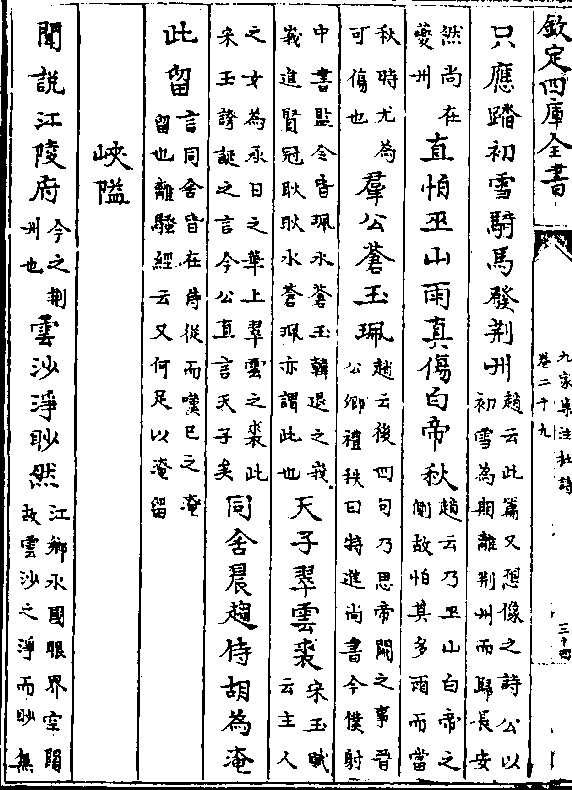 欽定四庫全書
九家集注杜詩
卷二十九
三十四
只應踏初雪騎馬發荆州趙云此篇又想像之詩公以
初雪為期離荆州而歸長安
然尚在
夔州
直怕巫山雨真傷白帝秋趙云乃巫山白帝之
側故怕其多雨而當
秋時尤為
可傷也
羣公蒼玉珮趙云後四句乃思帝闕之事晉
公卿禮秩曰特進尚書令僕射
中書監令皆珮水蒼玉韓退之峩
峩進賢冠耿耿水蒼珮亦謂此也
天子翠雲裘宋玉賦
云主人
之女為承日之華上翠雲之裘此
宋玉誇誕之言今公直言天子矣
同舍晨趨侍胡為淹
此留言同舍皆在侍從而嘆已之淹
留也離騷經云又何足以淹留
峽隘
聞説江陵府今之荆
州也
雲沙淨眇然江鄉水國眼界空闊
故雲沙之淨而眇無